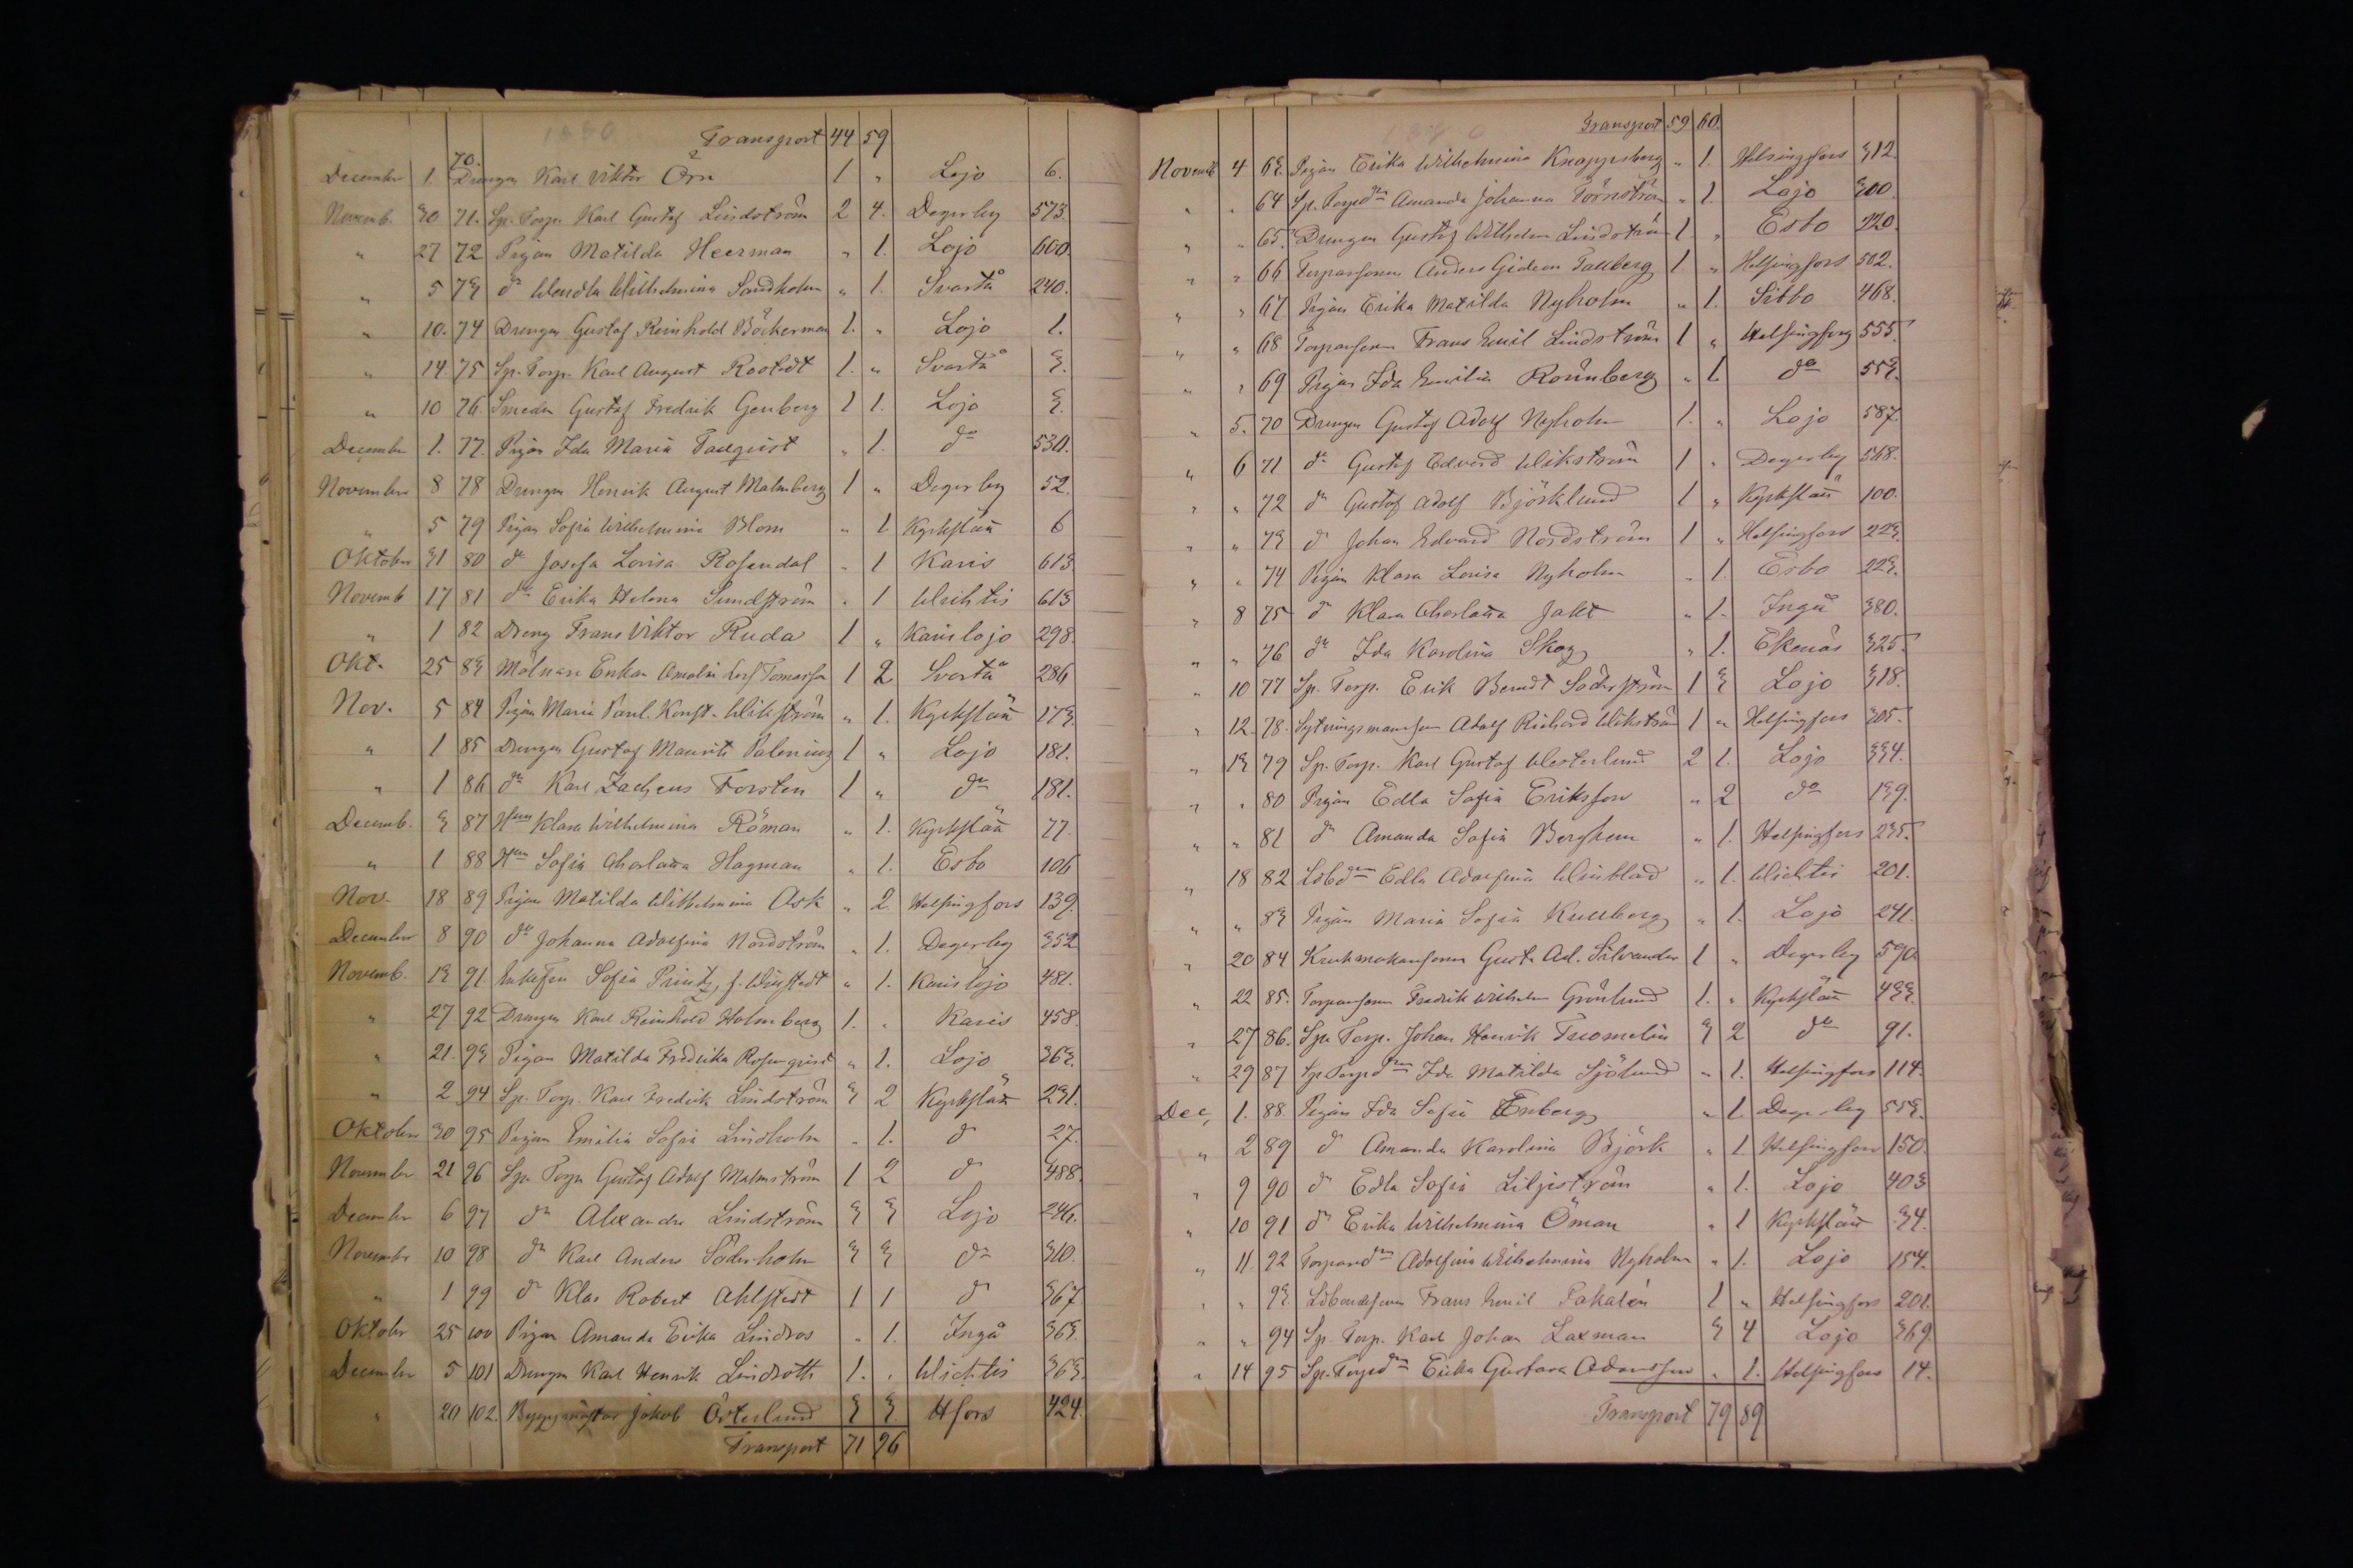 1880
Transport 44 59
December 1. 70. Drengen Karl Viktor Örn 1 " Lojo 6.
Novemb. 30 71. Sp. Torp. Karl Gustaf Lindström 2 4. Degerby 573.
" 27 72 Pigan Matilda Heerman " 1. Lojo 600.
" 5 73 do Wendla Wilhelmina Sandholm " 1. Svartå 240.
" 10. 74 Drengen Gustaf Reinhold Böckerman 1. " Lojo 1.
" 14 75 Sp. Torp. Karl August Rostedt 1. " Svartå 3.
" 10 76. Smeden Gustaf Fredrik Genberg 1 1. Lojo 3.
December 1. 77. Pigan Ida Maria Tallqvist " 1. do 530.
November 8 78 Drengen Henrik August Malmberg 1 " Degerby 52.
" 5 79 Pigan Sofia Wilhelmina Blom " 1 Kyrkslätt 6
Oktober 31 80 do Josefa Lovisa Rosendal " 1 Karis 613
Novemb 17 81 do Erika Helena Sundström " 1 Wichtis 613
" 1 82 Dreng Frans Viktor Ruda 1 " Karislojo 298.
Okt. 25 83 Mölnare Enkan Amalia Lovs Tomasson 1 2 Svartå 286
Nov. 5 84 Pigan Maria Paul. Konst. Wikström " 1. Kyrkslätt 173.
" 1 85 Drengen Gustaf Maurits Palenius 1 " Lojo 181.
" 1 86 do Karl Zacheus Forsten 1 " do 181.
Decemb. 3 87 Hun Klara Wilhelmina Röman " 1. Kyrkslätt 77.
" 1 88 Hun Sofia Charlotta Hagman " 1. Esbo 106
Nov. 18 89 Pigan Matilda Wilhelmina Ask " 2. Helsingfors 139.
December 8 90 do Johanna Adolfina Nordström " 1. Degerby 352
Novemb. 13 91 Enkefru Sofia Printz, f. Winstedt " 1. Karislojo 481.
" 27 92 Drengen Karl Reinhold Holmberg 1. " Karis 458.
" 21. 93 Pigan Matilda Fredrika Rosenqvist " 1. Lojo 363.
" 2 94 Sp. Torp. Karl Fredrik Lindström 3 2 Kyrkslätt 231.
Oktober 30 95 Pigan Emilia Sofia Lindholm " 1. do 27.
November 21 96 Sp. Torp. Gustaf Adolf Malmström 1 2 do 488.
December 6 97 do Alexander Lindström 3 3 Lojo 246.
November 10 98 do Karl Anders Söderholm 3 3 do 310.
" 1 99 do Klas Robert Ahlstedt 1 1 do 367.
Oktober 25 100 Pigan Amanda Erika Lindros " 1. Ingå 363.
December 5 101 Drengen Karl Henrik Lindroth 1. " Wichtis 363.
" 20 102. Byggmästar Jakob Österlund 3 3. Hfors 424.
Transport 71 96
1880
Transport 59 60.
Novemb 4 63. Pigan Erika Wilhelmina Knappsberg " 1. Helsingfors 312.
" " 64 Sp. Torpdn Amanda Johanna Törnström " 1. Lojo 300.
" " 65. Drengen Gustaf Wilhelm Lindström 1 " Esbo 220.
" " 66 Torparsonen Anders Gideon Tallberg 1 " Helsingfors 502.
" " 67 Pigan Erika Matilda Nyholm " 1. Sibbo 468.
" " 68 Torparsonen Frans Emil Lindström 1 " Helsingfors 555.
" " 69 Pigan Ida Emilia Rönnberg " 1. do 553.
" 5. 70 Drengen Gustaf Adolf Nyholm 1. " Lojo 587
" 6 71 do Gustaf Edvard Wikström 1 " Degerby 568.
" " 72 do Gustaf Adolf Björklund 1 " Kyrkslätt 100.
" " 73 do Johan Edvard Nordström 1 " Helsingfors 223.
" " 74 Pigan Klara Lovisa Nyholm " 1. Esbo 223.
" 8 75 do Klara Charlotta Jakt " 1. Ingå 380.
" " 76 do Ida Karolina Skog " 1. Ekenäs 325.
" 10 77 Sp. Torp. Erik Berndt Söderström 1 3 Lojo 318.
" 12. 78. Sytningsmansson Adolf Richard Wikström 1 " Helsingfors 305.
" 13 79 Sp. Torp. Karl Gustaf Westerlund 2 1. Lojo 334.
" " 80 Pigan Edla Sofia Eriksson " 2 do 139.
" " 81 do Amanda Sofia Berghem " 1. Helsingfors 235.
" 18 82 Ldbdn Edla Adolfina Winblad " 1. Wichtis 201.
" " 83 Pigan Maria Sofia Kullberg " 1. Lojo 241.
" 20 84 Krukmakarsonen Gust. Ad. Silvander 1 " Degerby 590.
" 22 85. Torparsonen Fredrik Wilhelm Grönlund 1. " Kyrkslätt 433.
" 27 86. Sp. Torp. Johan Henrik Tuomelin 3 2 do 91.
" 29 87 Sp. Torpdn Ida Matilda Sjölund " 1. Helsingfors 114.
Dec, 1. 88. Pigan Ida Sofia Enberg " 1 Degerby 553.
" 2 89 do Amanda Karolina Björk " 1 Helsingfors 150.
" 9 90 do Edla Sofia Liljeström " 1. Lojo 403
" 10 91 do Erika Wilhelmina Öman " 1 Kyrkslätt 34.
" 11. 92 Torparedn Adolfina Wilhelmina Nyholm " 1. Lojo 154.
" " 93. Ldbondesonen Frans Emil Pakalén 1 " Helsingfors 201.
" " 94 Sp. Torp. Karl Johan Laxman 3 4 Lojo 369.
" 14 95 Sp. Torpdn Erika Gustava Adamsson " 1. Helsingfors 14.
Transport 79 89